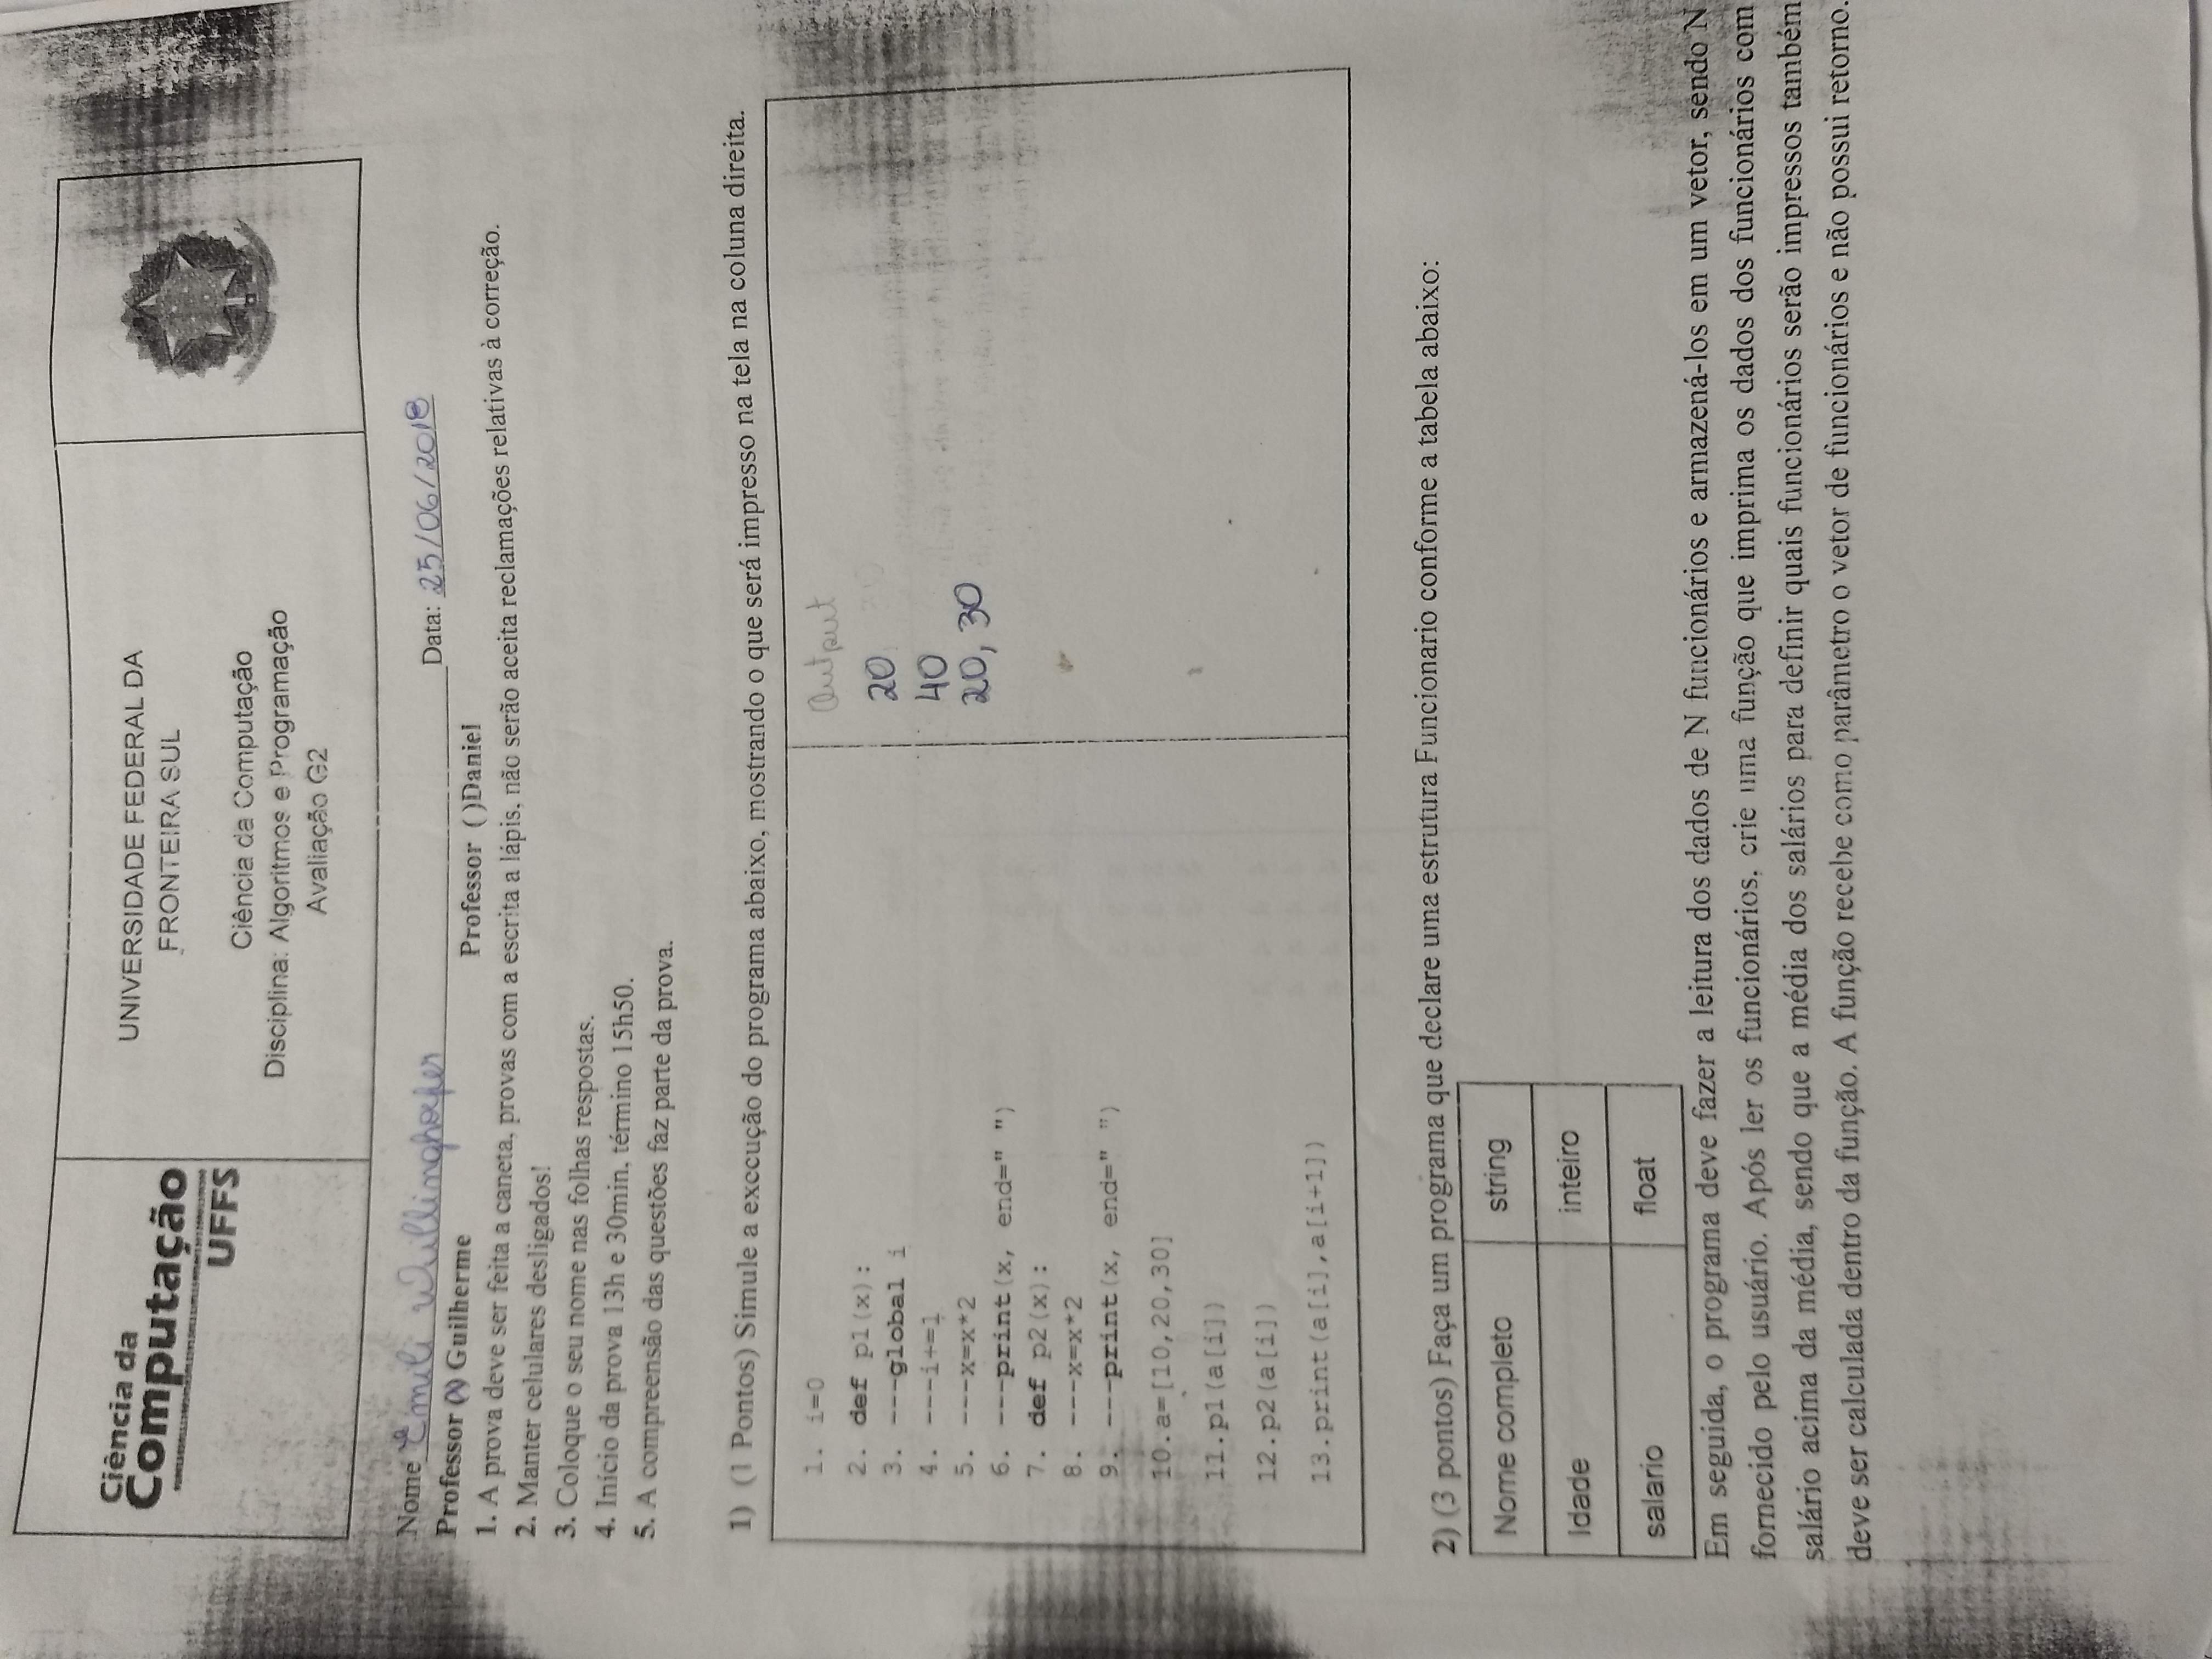 Ciência da
Computação
UFFS
UNIVERSIDADE FEDERAL DA
FRONTEIRA SUL
Ciência da Computação
Disciplina: Algoritmos e Programação
Avaliação G2
Nome Emili Willinghoefer Data: 25/06/2018
Professor (X) Guilherme Professor ( )Daniel
1. A prova deve ser feita a caneta, provas com a escrita a lápis, não serão aceita reclamações relativas à correção.
2. Manter celulares desligados!
3. Coloque o seu nome nas folhas respostas.
4. Início da prova 13h e 30min, término 15h50.
5. A compreensão das questões faz parte da prova.
1) (1 Pontos) Simule a execução do programa abaixo, mostrando o que será impresso na tela na coluna direita.
1. i=0
2. def p1(x):
3. ---global i
4. ---i+=1
5. ---x=x*2
6. ---print(x, end=" ")
7. def p2(x):
8. ---x=x*2
9. ---print(x, end=" ")
10.a=[10,20,30]
11.p1(a[i])
12.p2(a[i])
13.print(a[i],a[i+1])
Output
20
40
20, 30
2) (3 pontos) Faça um programa que declare uma estrutura Funcionario conforme a tabela abaixo:
Nome completo string
Idade inteiro
salario float
Em seguida, o programa deve fazer a leitura dos dados de N funcionários e armazená-los em um vetor, sendo N
fornecido pelo usuário. Após ler os funcionários, crie uma função que imprima os dados dos funcionários com
salário acima da média, sendo que a média dos salários para definir quais funcionários serão impressos também
deve ser calculada dentro da função. A função recebe como parâmetro o vetor de funcionários e não possui retorno.